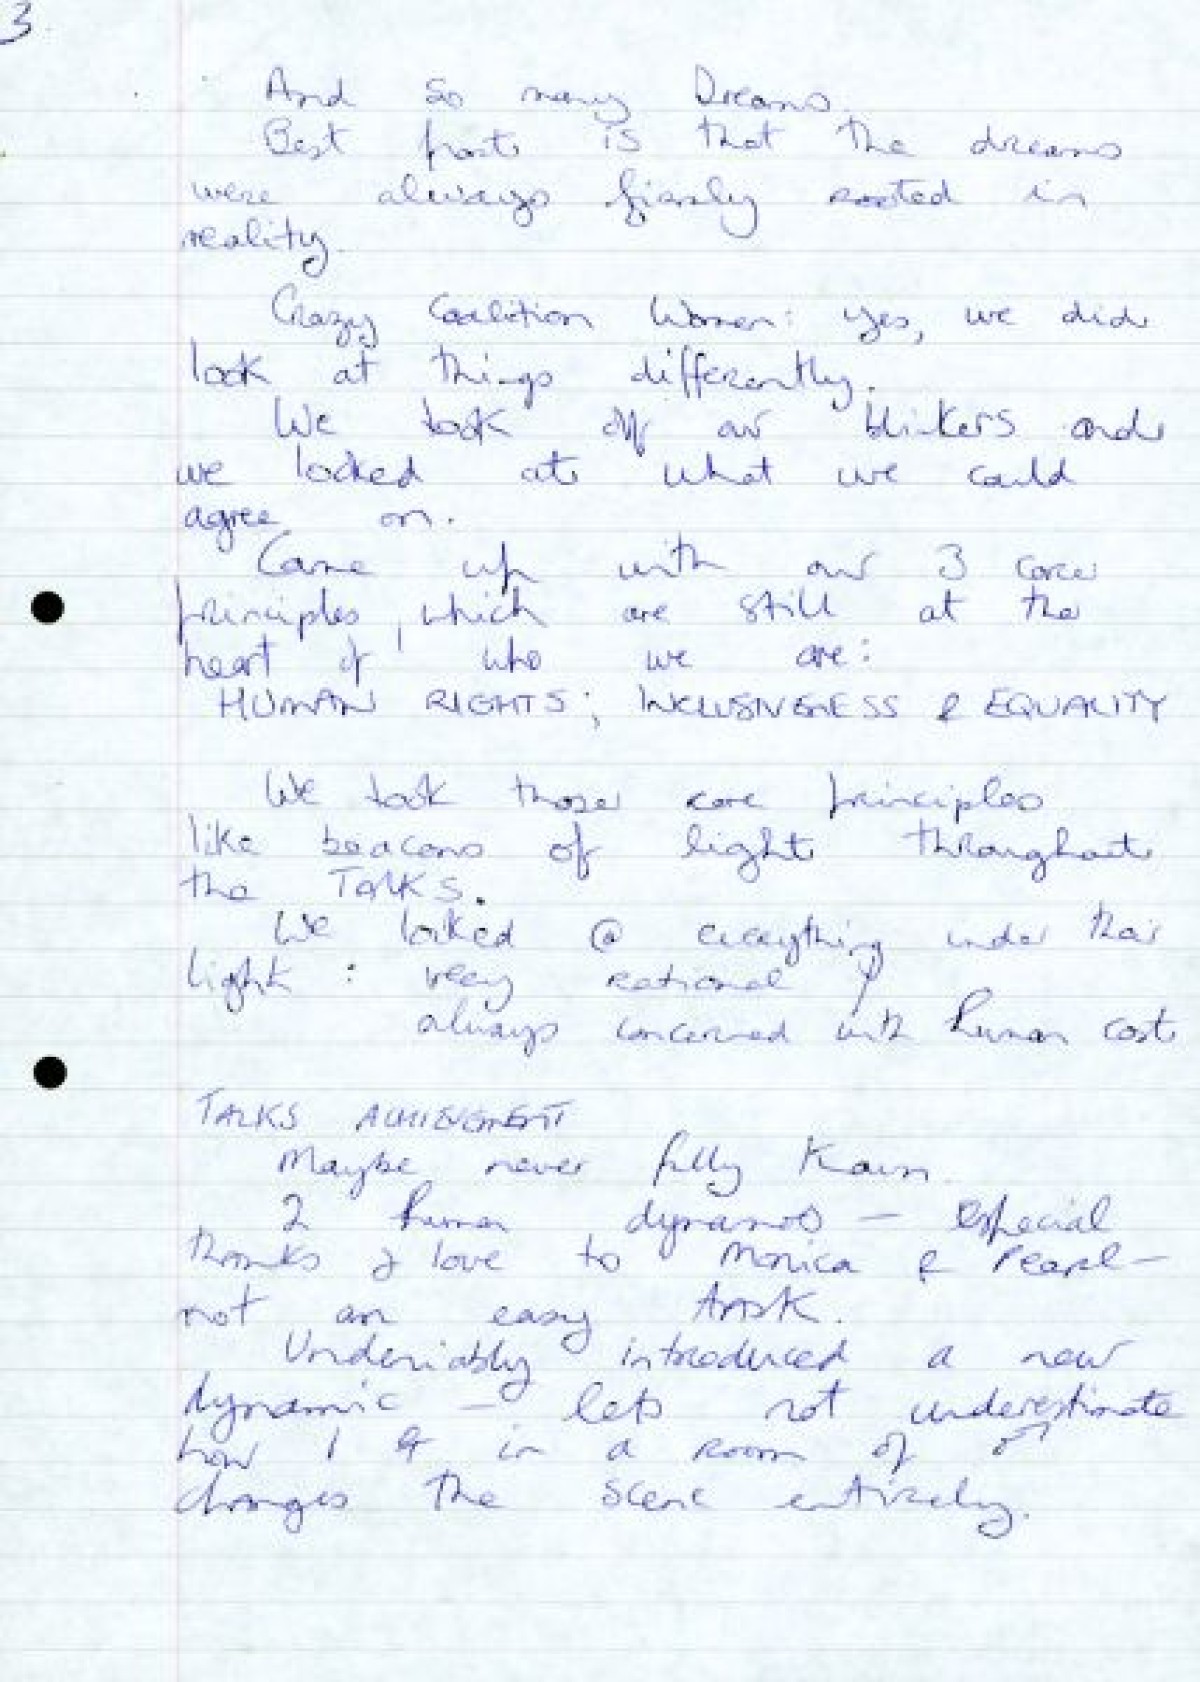 3
And so many Dreams.
Best part is that the dreams
were always firmly rooted in
reality.
Crazy Coalition Women: yes, we did
look at things differently.
We took off our blinkers and
we looked at what we could
agree on.
Came up with our 3 core
principles, which are still at the
heart of who we are:
HUMAN RIGHTS; INCLUSIVENESS & EQUALITY
We took those core principles
like beacons of light throughout
the TALKS.
We looked @ everything under their
light: very rational
always concerned with human cost
TALKS ACHIEVEMENT
Maybe never fully known.
2 human dynamos – especial
thanks & love to Monica & Pearl –
not an easy task.
Undeniably introduced a new
dynamic – lets not underestimate
how 1 ♀ in a room of ♂
changes the scene entirely.